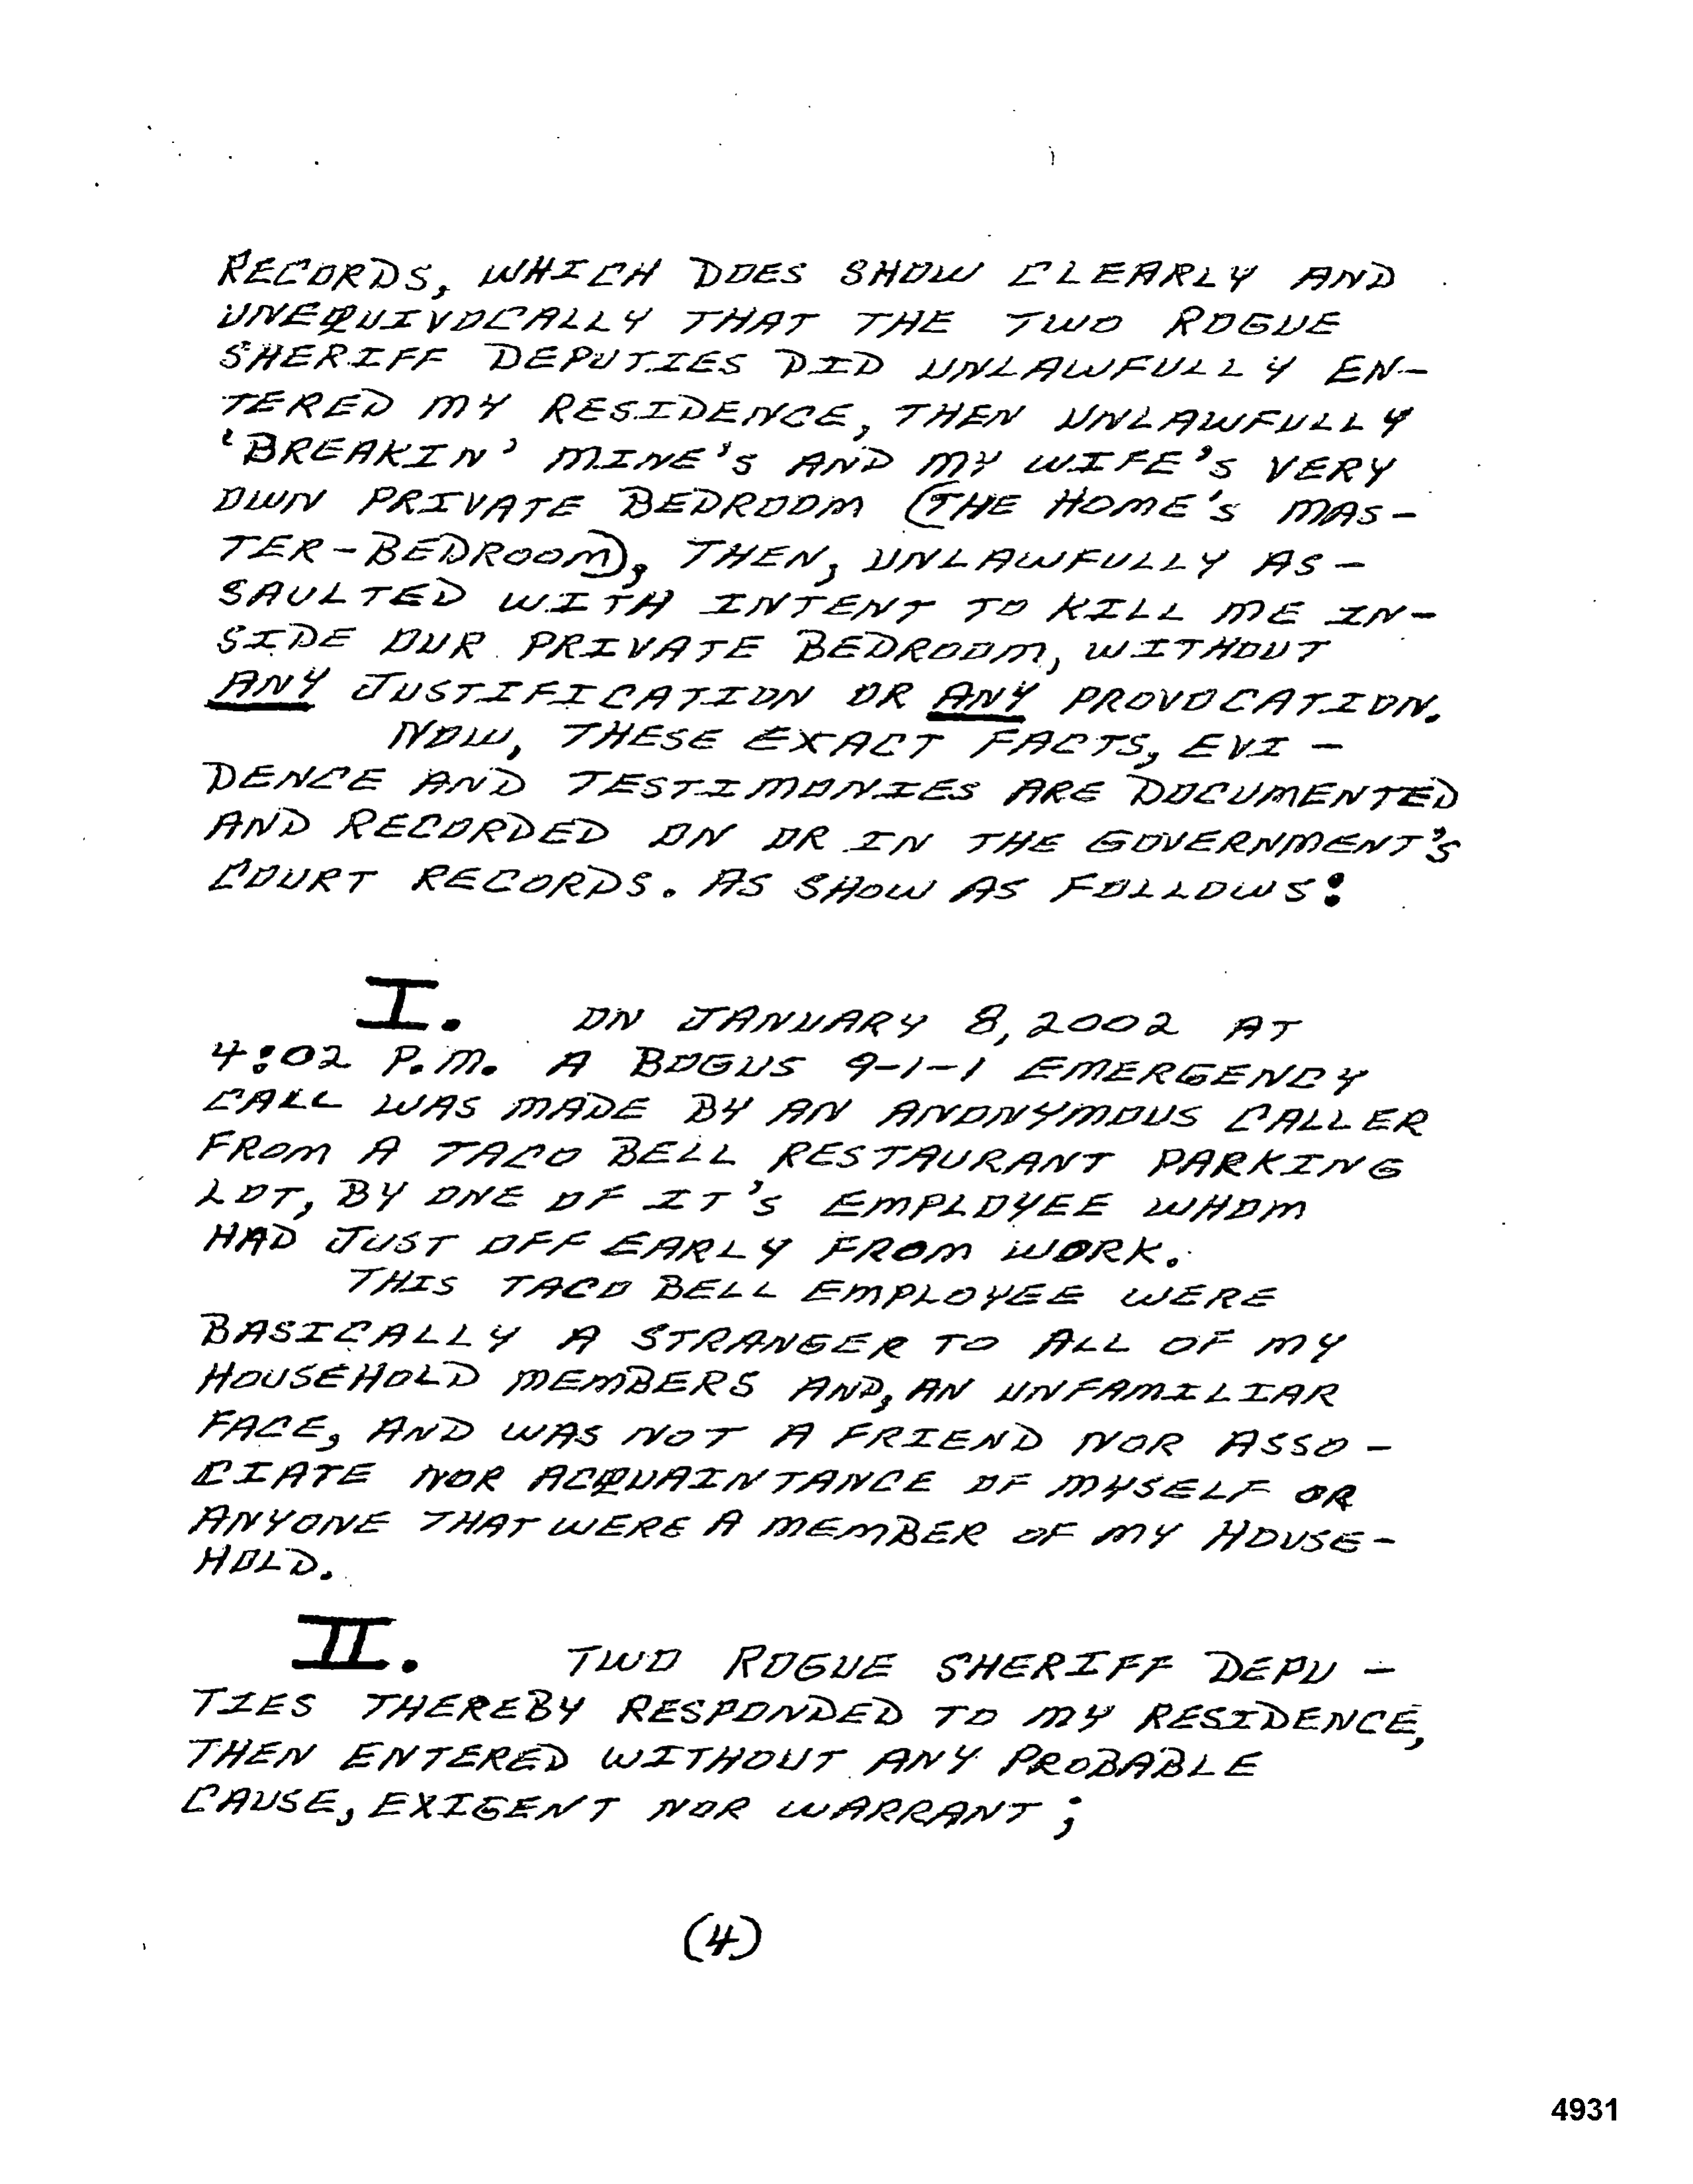 RECORDS, WHICH DOES SHOW CLEARLY AND
UNEQUIVOCALLY THAT THE TWO ROGUE
SHERIFF DEPUTIES DID UNLAWFULLY EN-
TERED MY RESIDENCE, THEN UNLAWFULLY
'BREAKIN' MINE'S AND MY WIFE'S VERY
OWN PRIVATE BEDROOM (THE HOME'S MAS-
TER-BEDROOM), THEN, UNLAWFULLY AS-
SAULTED WITH INTENT TO KILL ME IN-
SIDE OUR PRIVATE BEDROOM, WITHOUT
ANY JUSTIFICATION OR ANY PROVOCATION.
NOW, THESE EXACT FACTS, EVI-
DENCE AND TESTIMONIES ARE DOCUMENTED
AND RECORDED ON OR IN THE GOVERNMENT'S
COURT RECORDS. AS SHOW AS FOLLOWS:
I. ON JANUARY 8, 2002 AT
4:02 P.M. A BOGUS 9-1-1 EMERGENCY
CALL WAS MADE BY AN ANONYMOUS CALLER
FROM A TACO BELL RESTAURANT PARKING
LOT, BY ONE OF IT'S EMPLOYEE WHOM
HAD JUST OFF EARLY FROM WORK.
THIS TACO BELL EMPLOYEE WERE
BASICALLY A STRANGER TO ALL OF MY
HOUSEHOLD MEMBERS AND, AN UNFAMILIAR
FACE, AND WAS NOT A FRIEND NOR ASSO-
CIATE NOR ACQUAINTANCE OF MYSELF OR
ANYONE THAT WERE A MEMBER OF MY HOUSE-
HOLD.
II. TWO ROGUE SHERIFF DEPU-
TIES THEREBY RESPONDED TO MY RESIDENCE,
THEN ENTERED WITHOUT ANY PROBABLE
CAUSE, EXIGENT NOR WARRANT;
(4)
4931